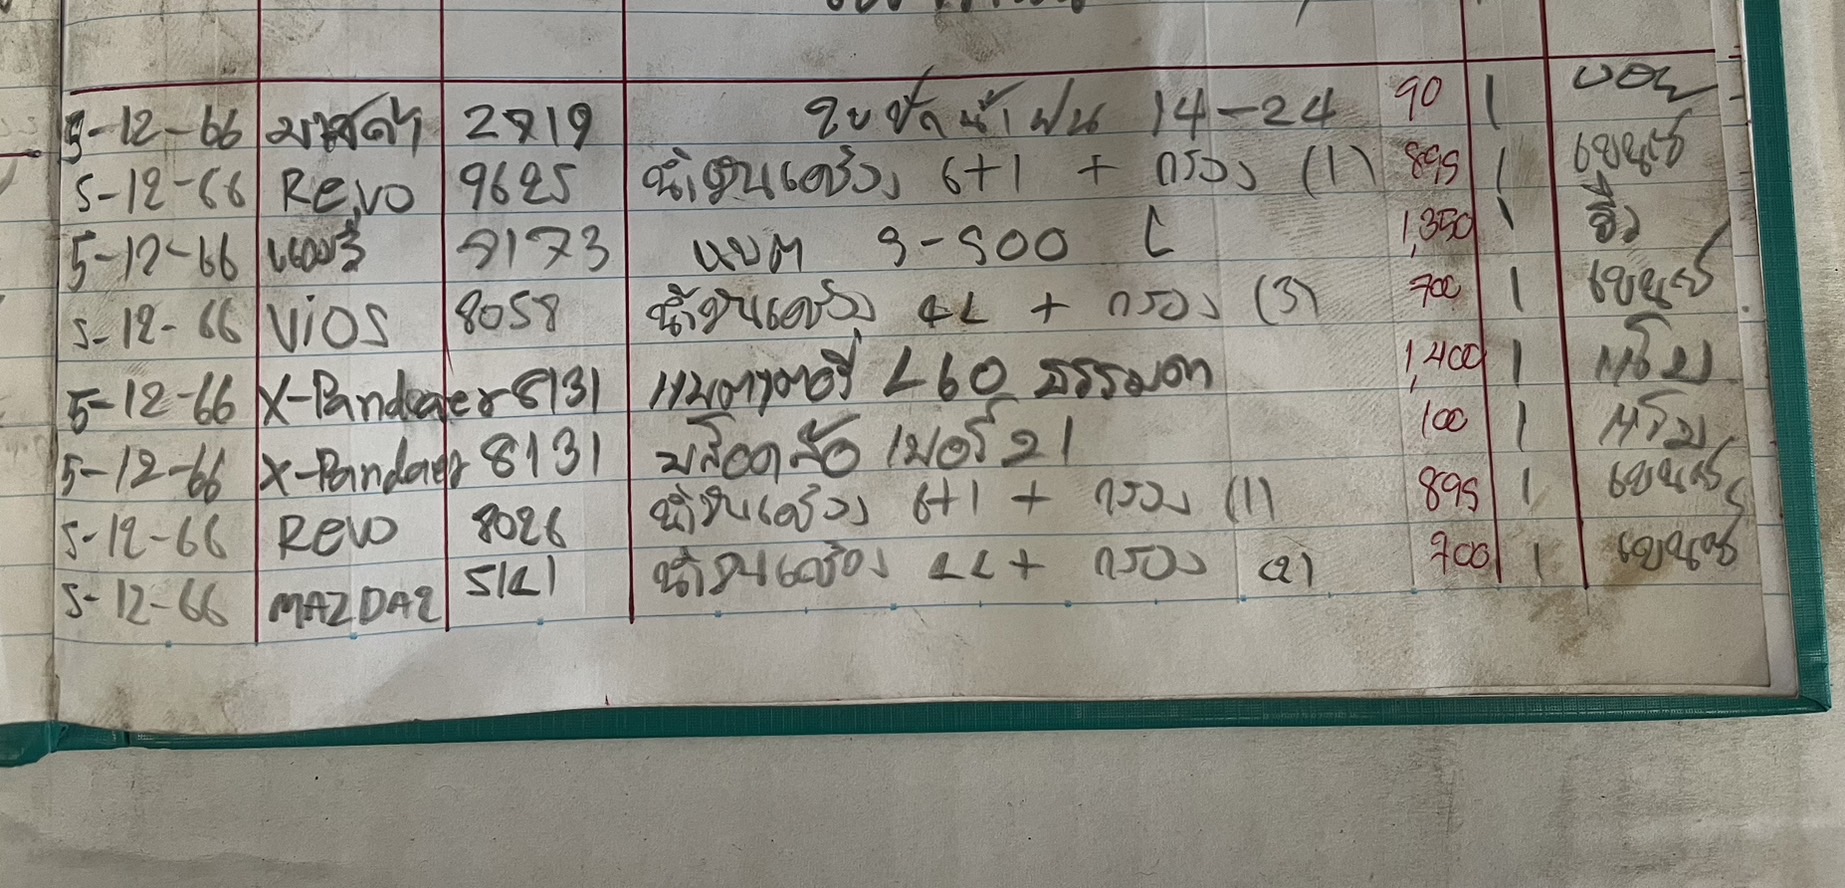 5-12-66 มาสด้า 2719 ใบปัดน้ำฝน 14-24 90 1 บอย
5-12-66 Revo 9625 น้ำมันเครื่อง 6+1 + กรอง (1) 895 1
5-12-66 แคมรี่ 7173 แบต S-S00 L 1,350 1
5-12-66 ViOS 8058 น้ำมันเครื่อง 4L + กรอง (3) 700 1
5-12-66 X-Pandaer 8131 แบตเตอรี่ L60 ธรรมดา 1,400 1
5-12-66 X-Pandaer 8131 น๊อตล้อ เบอร์ 21 100 1
5-12-66 Revo 8026 น้ำมันเครื่อง 6+1 + กรอง (1) 895 1
5-12-66 MAZDA2 5141 น้ำมันเครื่อง 4L + กรอง (2) 700 1